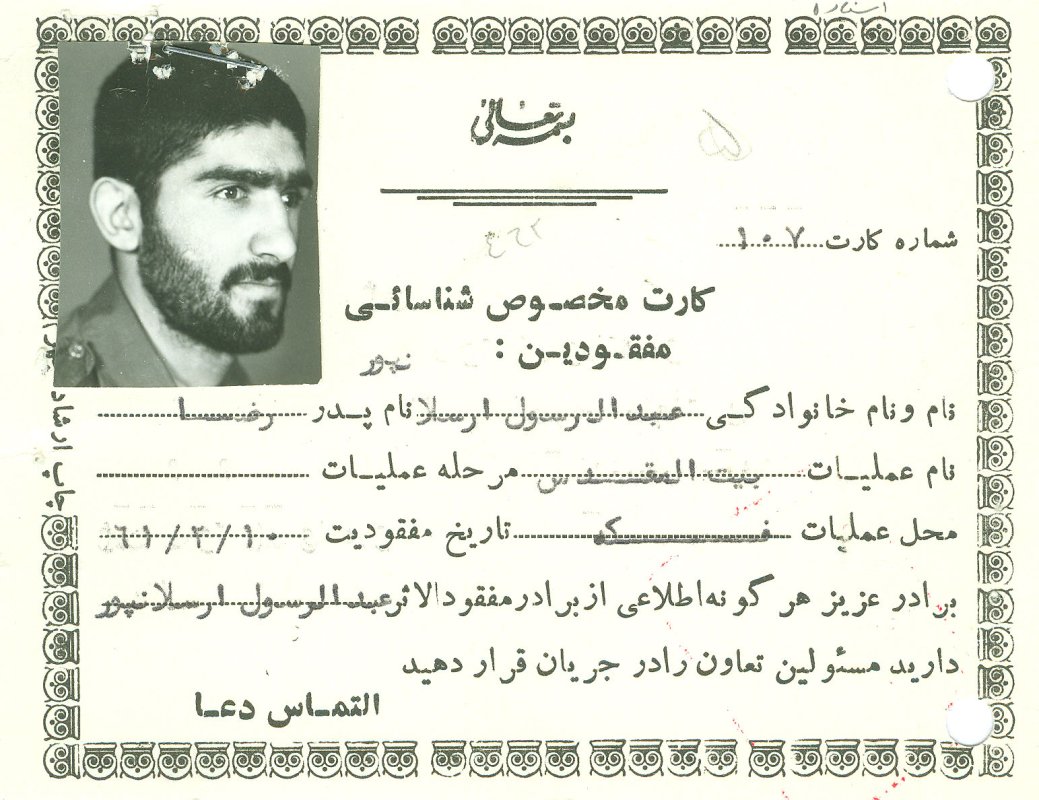 بسمه تعالی
۵
شماره کارت ۱۰۷
کارت مخصوص شناسائی
مفقودین :
نام و نام خانوادگی عبدالرسول ارسلانپور نام پدر رضا
نام عملیات بیت المقدس مرحله عملیات
محل عملیات فکه تاریخ مفقودیت ۶۱/۲/۱۰
برادر عزیز هر گونه اطلاعی از برادر مفقودالاثر عبدالرسول ارسلانپور
دارید مسئولین تعاون را در جریان قرار دهید
التماس دعا
چاپ ارشاد